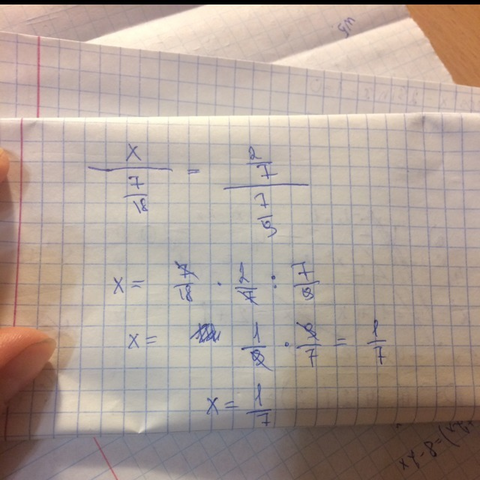 x/(7/18) = (2/7)/(7/9)
x = 7/18 · 2/7 : 7/9
x = 1/9 · 9/7 = 1/7
x = 1/7